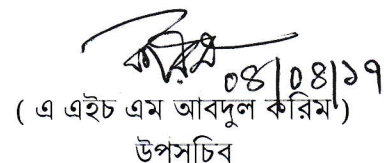 ০৪|০৪|১৭
( এ এইচ এম আবদুল করিম )
উপসচিব